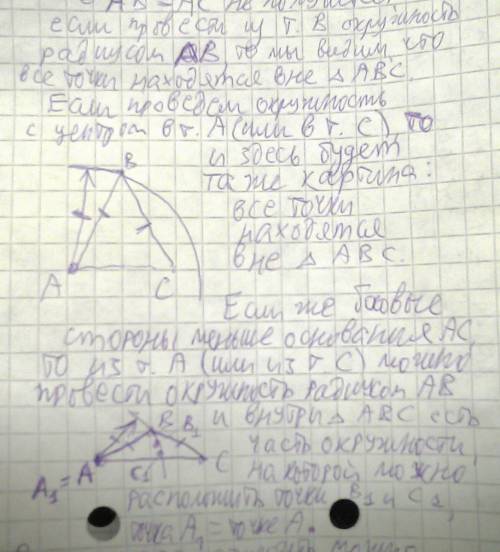 если провести из т. В окружность
радиусом АВ, то мы видим, что
все точки находятся вне △ АВС.
Если проведём окружность
с центром в т. А (или в т. С), то
и здесь будет
та же картина:
все точки
находятся
вне △ АВС.
В
А
С
Если же боковые
стороны меньше основания АС,
то из т. А (или из т. С) можно
провести окружность радиусом АВ
и внутри △ АВС есть
часть окружности,
на которой можно
расположить точки В₁ и С₁,
точка А₁ = точке А.
В
В₁
А₁ = А
С₁
С